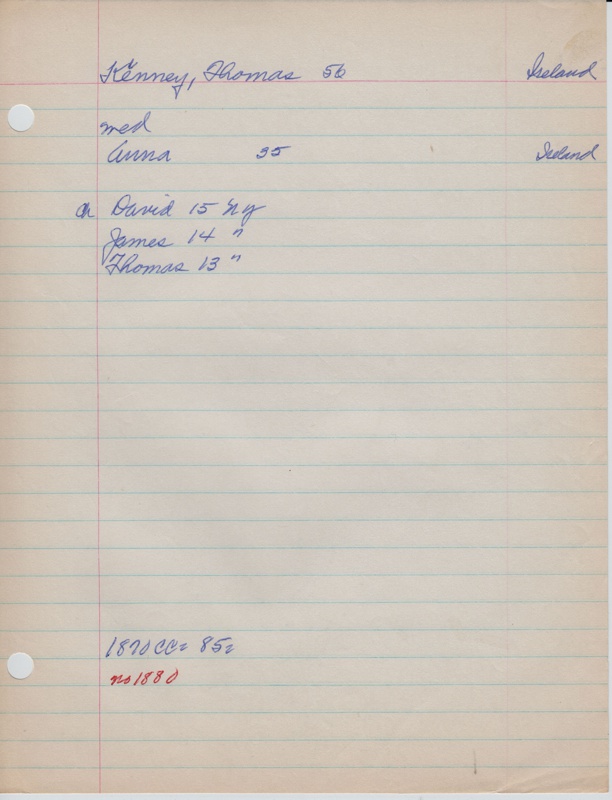 Kenney, Thomas 56 Ireland
med
Anna 35 Ireland
ch David 15 NY
James 14 "
Thomas 13 "
1870 CC= 85=
no 1880